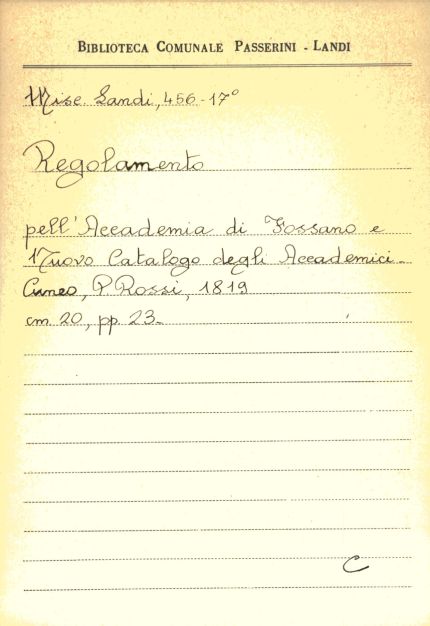 BIBLIOTECA COMUNALE PASSERINI - LANDI
Misc. Landi, 456-17°
Regolamento
pell'Accademia di Fossano e
Nuovo Catalogo degli Accademici.
Cuneo, P. Rossi, 1819
cm. 20, pp. 23.
C